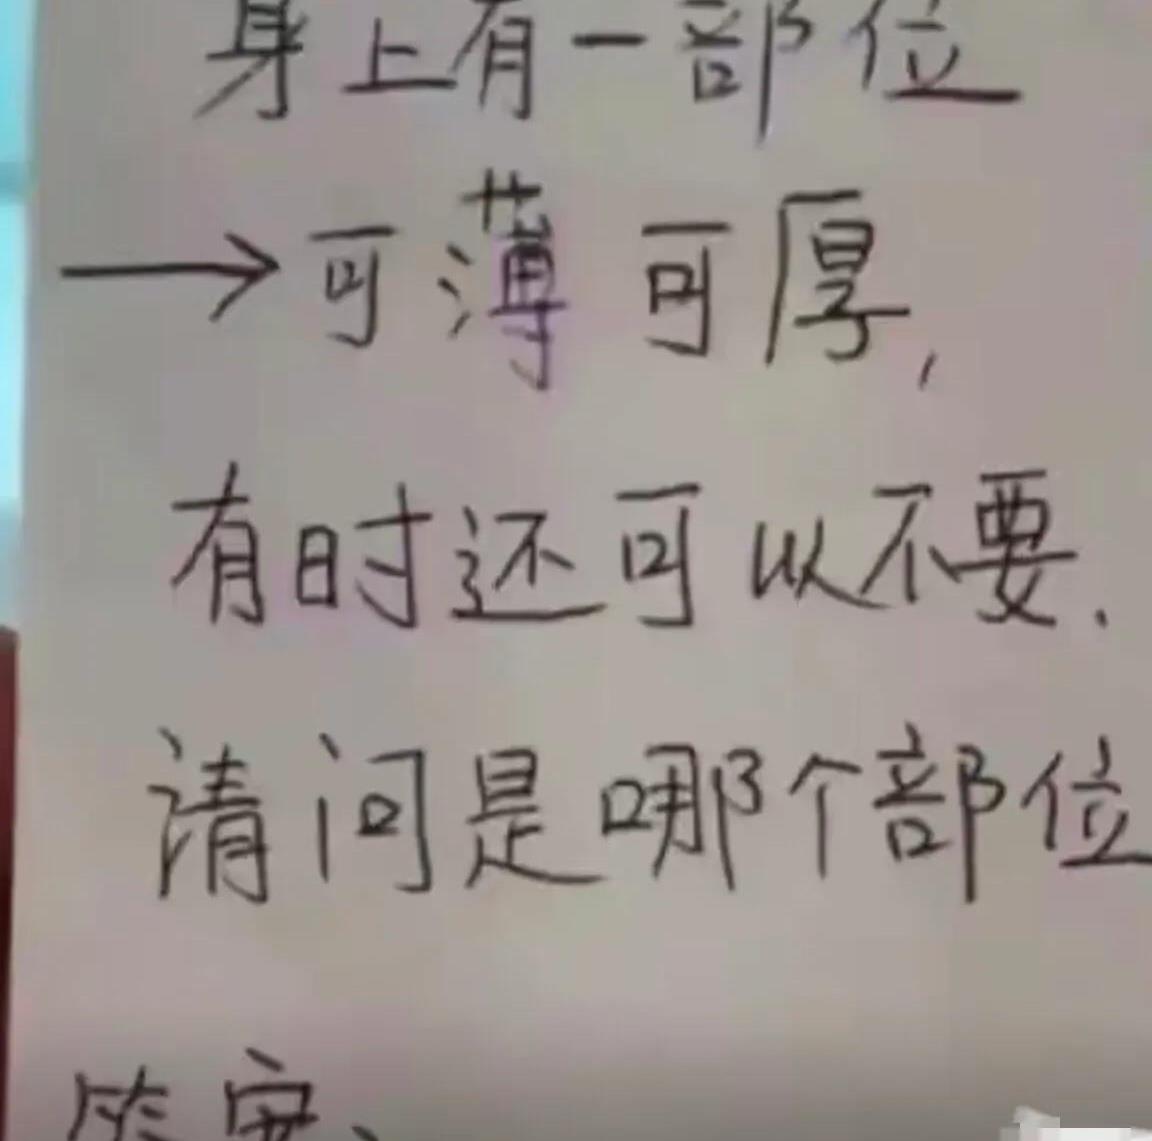 身上有一部位
→可薄可厚,
有时还可以不要.
请问是哪个部位
答案: